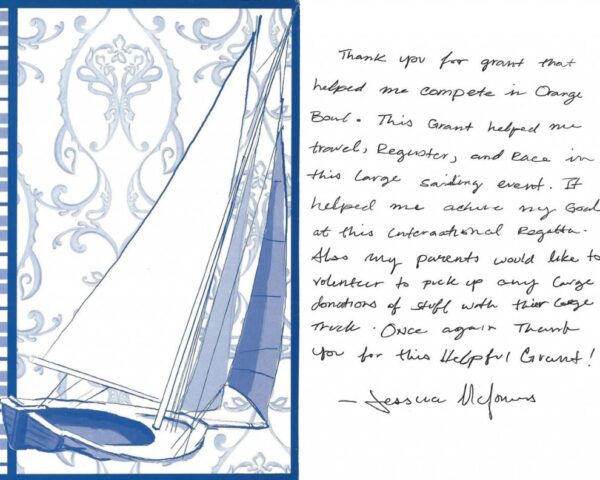 Thank you for grant that
helped me compete in Orange
Bowl. This Grant helped me
travel, Reguster, and Race in
this large sailing event. It
helped me achive my Goal
at this international Regatta.
Also my parents would like to
volunteer to pick up any large
donations of stuff with their large
Truck. Once again Thank
you for this Helpful Grant!
- Jessica